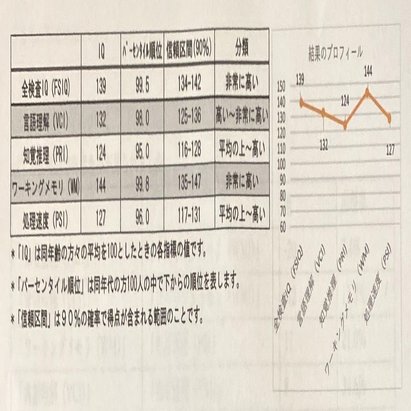 IQ パーセンタイル順位 信頼区間(90%) 分類
全検査IQ (FSIQ) 139 99.5 134-142 非常に高い
言語理解 (VCI) 132 98.0 125-136 高い～非常に高い
知覚推理 (PRI) 124 95.0 116-128 平均の上～高い
ワーキングメモリ (WM) 144 99.8 135-147 非常に高い
処理速度 (PSI) 127 96.0 117-131 平均の上～高い
*「IQ」は同年齢の方々の平均を100としたときの各指標の値です。
*「パーセンタイル順位」は同年代の方100人の中で下からの順位を表します。
*「信頼区間」は90%の確率で得点が含まれる範囲のことです。
結果のプロフィール
150
140
130
120
110
100
90
80
70
60
139
132
124
144
127
全検査IQ (FSIQ)
言語理解 (VCI)
知覚推理 (PRI)
ワーキングメモリ (WMI)
処理速度 (PSI)